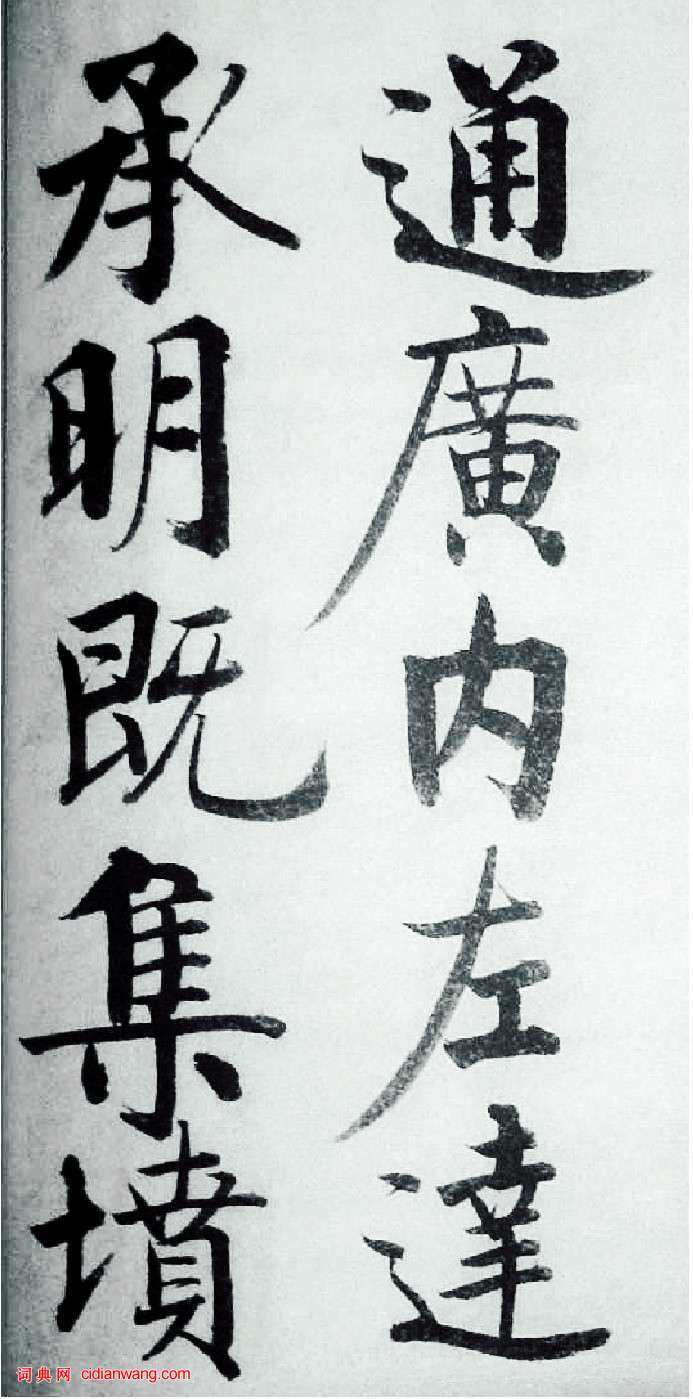 通廣内左達
承明既集墳
词典网 cidianwang.com